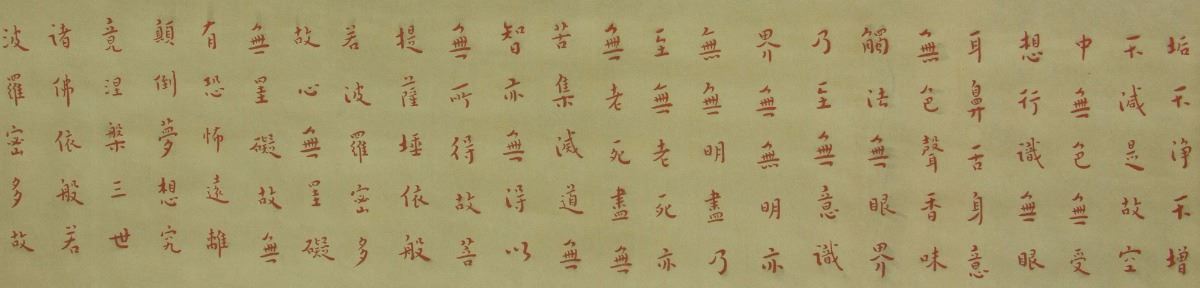 垢不淨不增
不減是故空
中無色無受
想行識無眼
耳鼻舌身意
無色聲香味
觸法無眼界
乃至無意識
界無無明亦
無無明盡乃
至無老死亦
無老死盡無
苦集滅道無
智亦無得以
無所得故菩
提薩埵依般
若波羅密多
故心無罣礙
無罣礙故無
有恐怖遠離
顛倒夢想究
竟涅槃三世
諸佛依般若
波羅密多故